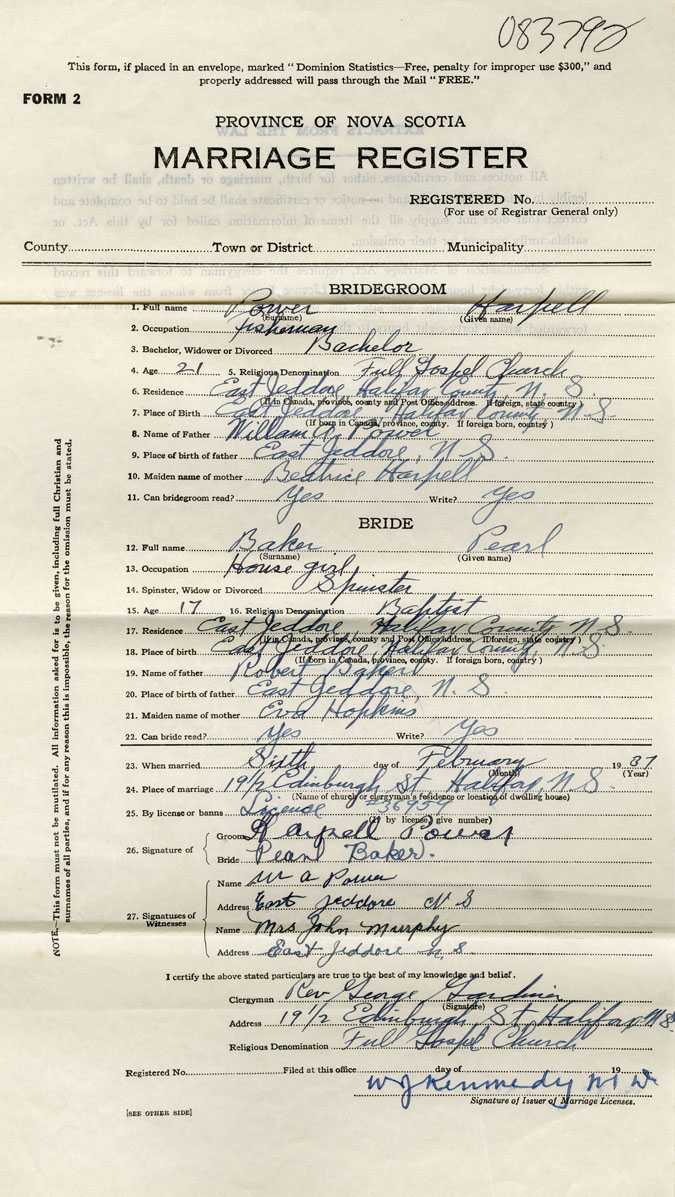 083792
This form, if placed in an envelope, marked "Dominion Statistics—Free, penalty for improper use $300," and
properly addressed will pass through the Mail "FREE."
FORM 2
PROVINCE OF NOVA SCOTIA
MARRIAGE REGISTER
REGISTERED No.
(For use of Registrar General only)
County Town or District Municipality
BRIDEGROOM
1. Full name Power Harpell
(Surname) (Given name)
2. Occupation fisherman
3. Bachelor, Widower or Divorced Bachelor
4. Age 21 5. Religious Denomination Full Gospel Church
6. Residence East Jeddore Halifax County N. S
(If in Canada, province, county and Post Office address. If foreign, state country)
7. Place of Birth East Jeddore, Halifax County N. S.
(If born in Canada, province, county. If foreign born, country)
8. Name of Father William A. Power
9. Place of birth of father East Jeddore, N-S.
10. Maiden name of mother Beatrice Harpell
11. Can bridegroom read? Yes Write? Yes
BRIDE
12. Full name Baker Pearl
(Surname) (Given name)
13. Occupation House girl
14. Spinster, Widow or Divorced Spinster
15. Age 17 16. Religious Denomination Baptist
17. Residence East Jeddore, Halifax County N. S.
(If in Canada, province, county and Post Office Address. If foreign, state country)
18. Place of birth East Jeddore, Halifax County, N. S.
(If born in Canada, province, county. If foreign born, country)
19. Name of father Robert Baker
20. Place of birth of father East Jeddore, N. S.
21. Maiden name of mother Eva Hopkins
22. Can bride read? Yes Write? Yes
23. When married Sixth day of February 1937
(Month) (Year)
24. Place of marriage 19 1/2 Edinburgh St Halifax, N. S.
(Name of church or clergyman's residence or location of dwelling house)
25. By license or banns Licence #36954
(If by license, give number)
26. Signature of Groom Harpell Power
Bride Pearl Baker.
27. Signatures of Witnesses Name W a Power
Address East Jeddore N S
Name Mrs John Murphy
Address East Jeddore N. S.
I certify the above stated particulars are true to the best of my knowledge and belief.
Clergyman Rev George Gardiner
(Signature)
Address 19 1/2 Edinburgh, St, Halifax, N S.
Religious Denomination Full Gospel Church
Registered No. Filed at this office day of 19
W J Kennedy
Signature of Issuer of Marriage Licenses.
[SEE OTHER SIDE]
NOTE.—This form must not be mutilated. All information asked for is to be given, including full Christian and
surnames of all parties, and if for any reason this is impossible, the reason for the omission must be stated.